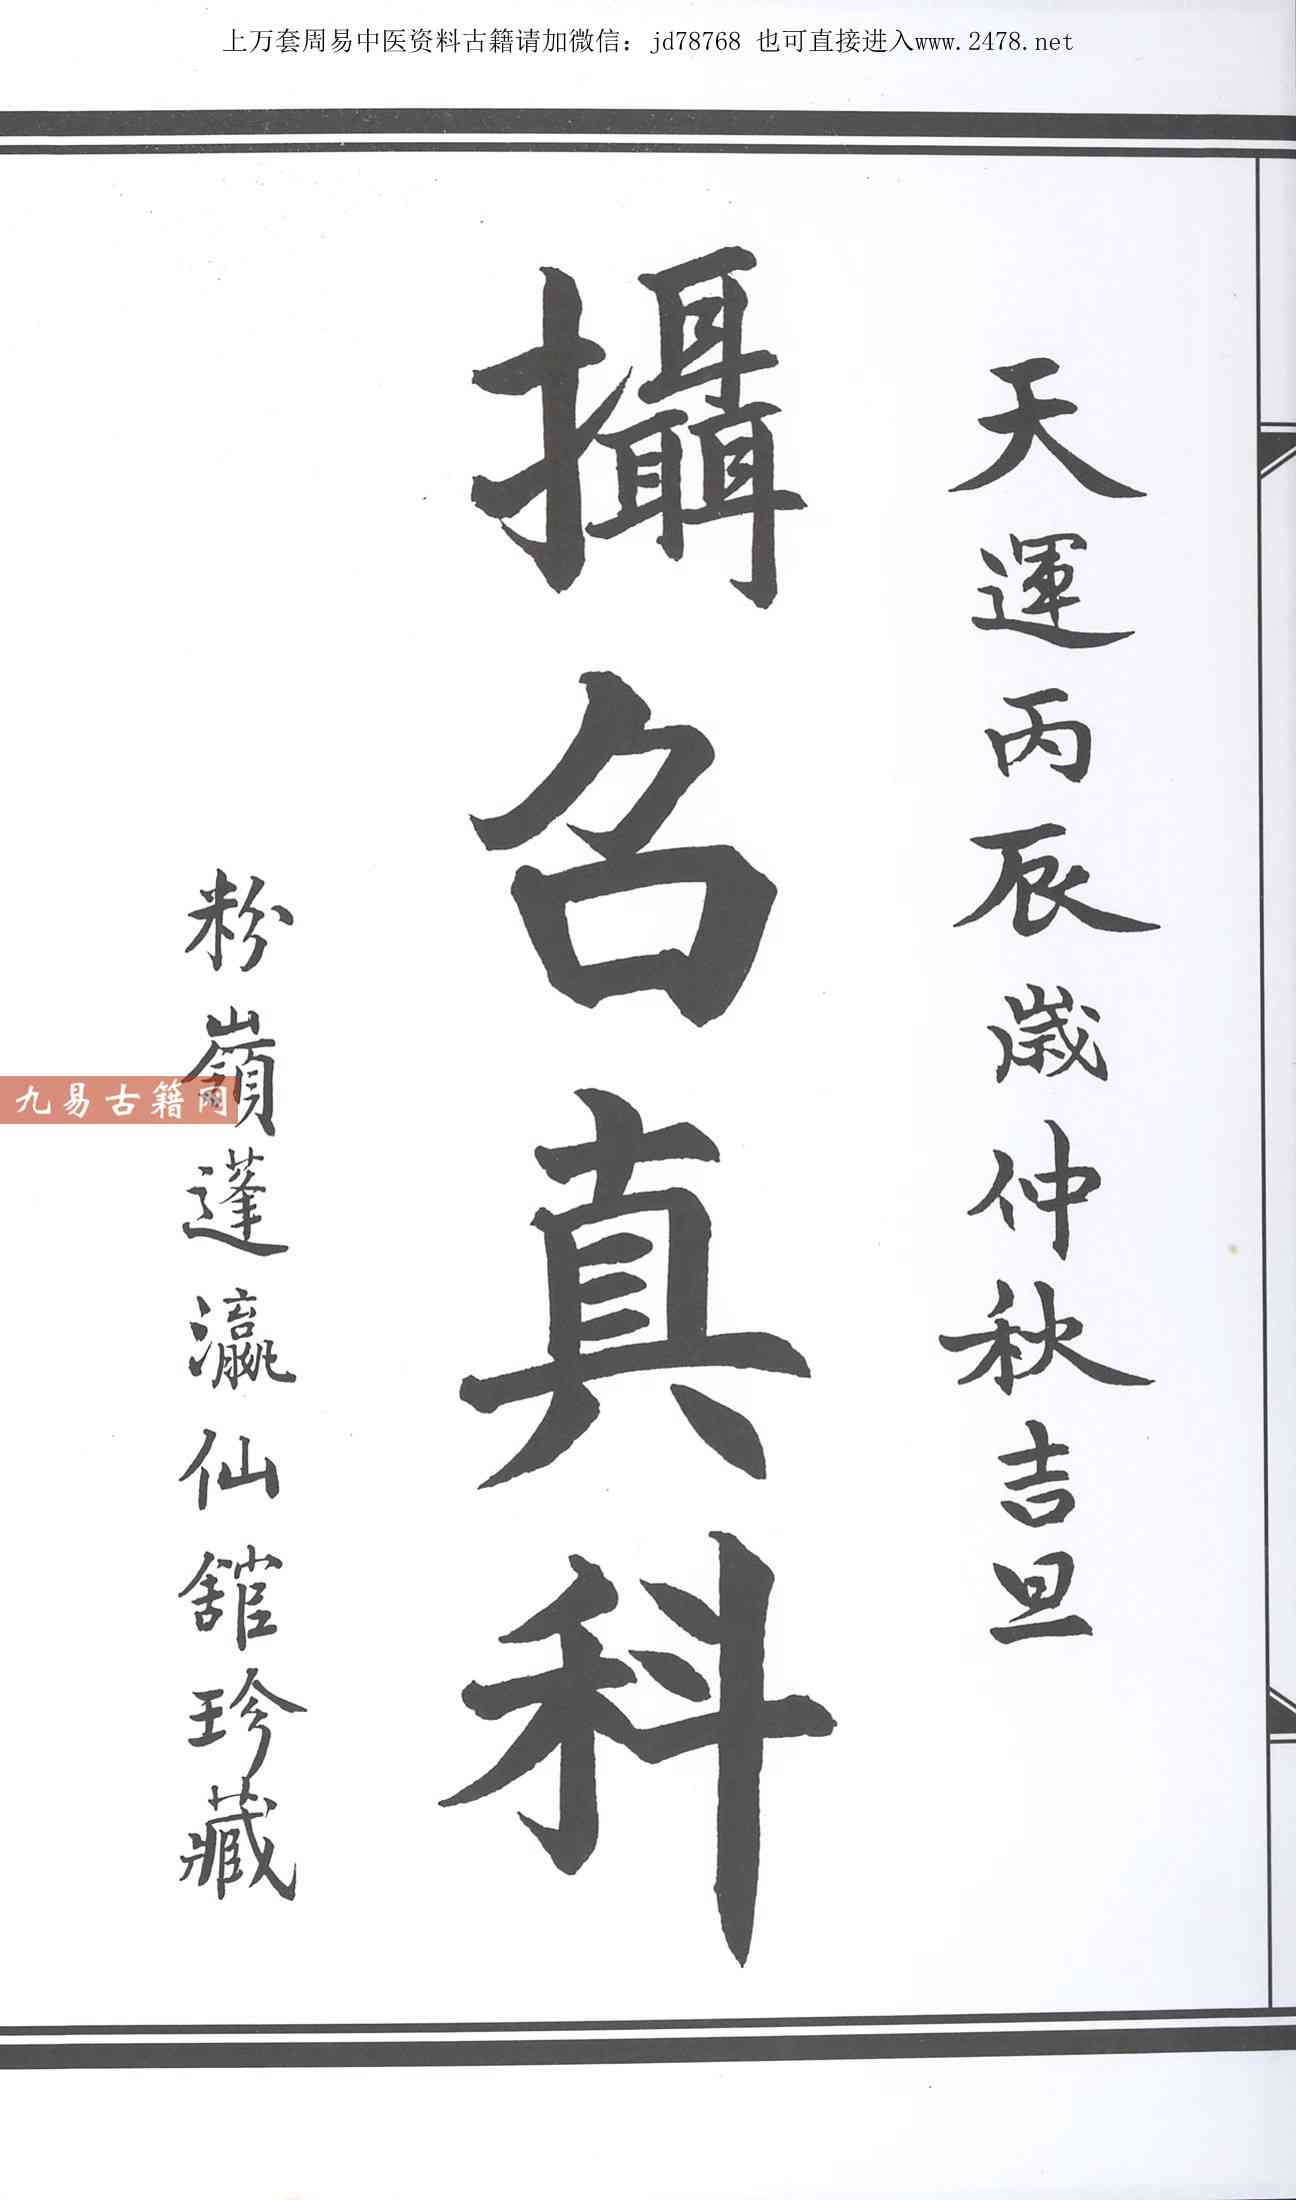 上万套周易中医资料古籍请加微信：jd78768 也可直接进入www.2478.net
天運丙辰歲仲秋吉旦
攝召真科
粉嶺蓬瀛仙舘珍藏
九易古籍网